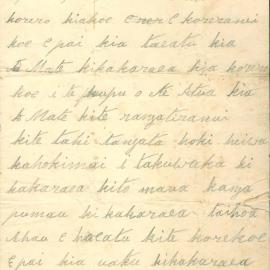 korero kiakoe E korerawi
koe E pai kia taeatu kia
Te Mate kikakaraea kia korero
koe i te kupu o Ne Atua kia
Te Mate kite rangatiranui
kite tahi tangata hoki heiwa
kahokimai i takuwaka ki
kakaraea kito mava kanga
pumau ki kakaraea taihoa
Ahau E haeatu kite korekoe
E pai kia uaku kikakaraea